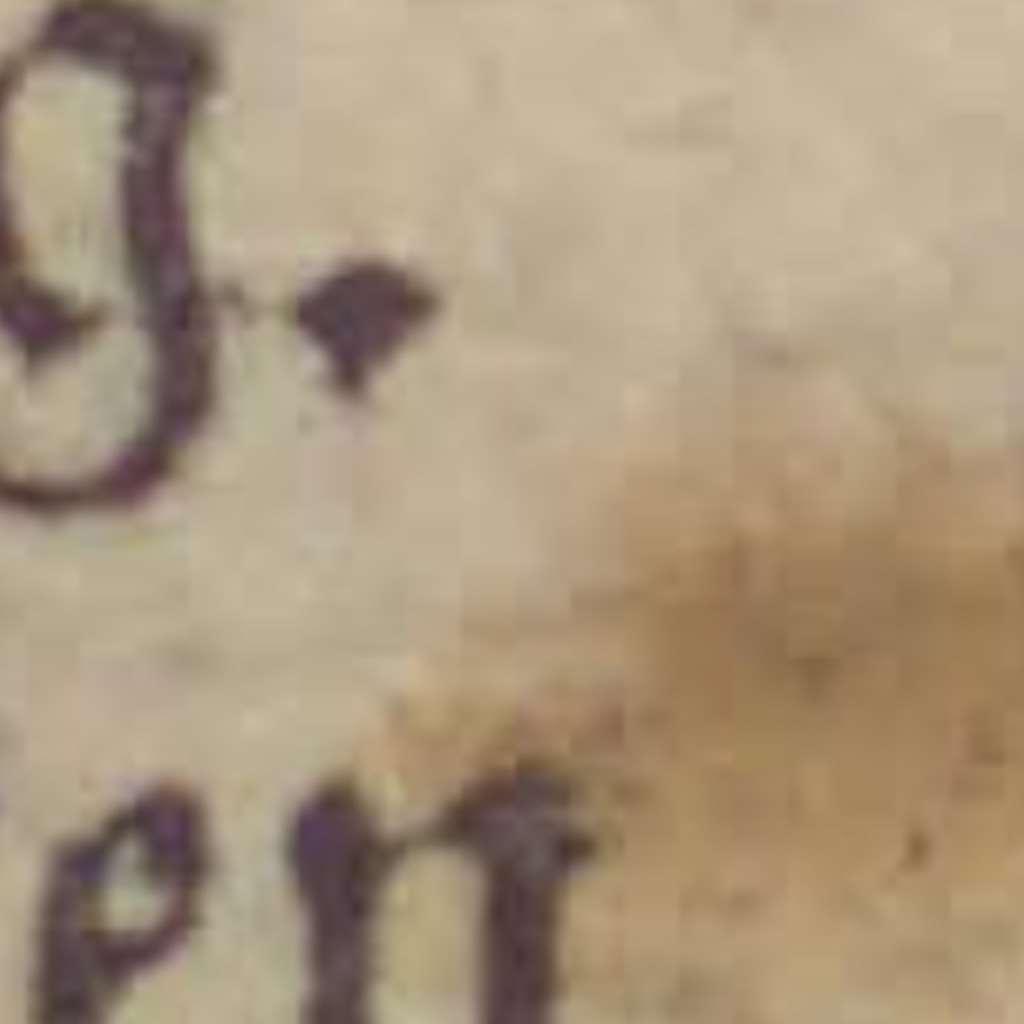 g.
en